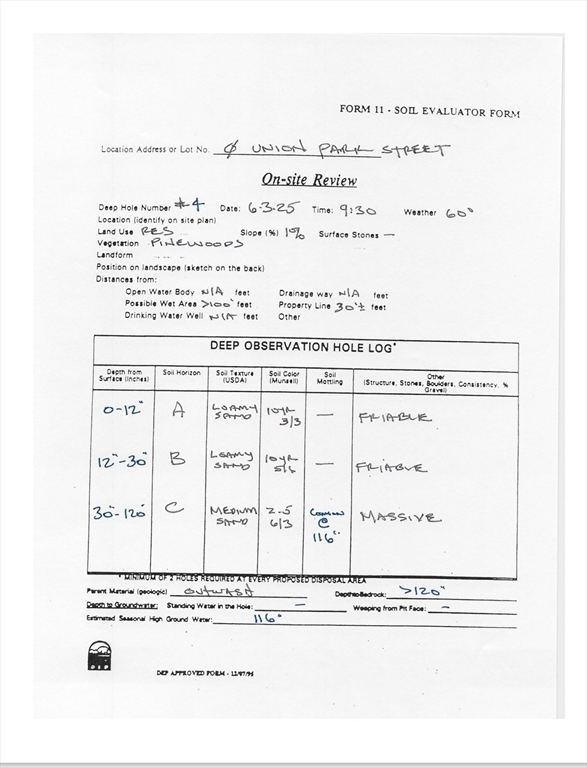 FORM 11 - SOIL EVALUATOR FORM
Location Address or Lot No. Ø UNION PARK STREET
On-site Review
Deep Hole Number #4 Date: 6-3-25 Time: 9:30 Weather 60°
Location (identify on site plan)
Land Use RES Slope (%) 1% Surface Stones —
Vegetation PINEWOODS
Landform
Position on landscape (sketch on the back)
Distances from:
Open Water Body N/A feet Drainage way N/A feet
Possible Wet Area >100' feet Property Line 30'± feet
Drinking Water Well N/A feet Other
DEEP OBSERVATION HOLE LOG*
Depth from Surface (Inches) Soil Horizon Soil Texture (USDA) Soil Color (Munsell) Soil Mottling Other (Structure, Stones, Boulders, Consistency, % Gravel)
0-12" A LOAMY SAND 10YR 3/3 — FRIABLE
12"-30" B LOAMY SAND 10YR — FRIABLE
30"-120" C MEDIUM SAND 2.5 6/3 COMMON @ 116" MASSIVE
* MINIMUM OF 2 HOLES REQUIRED AT EVERY PROPOSED DISPOSAL AREA
Parent Material (geologic) OUTWASH Depth to Bedrock: >120"
Depth to Groundwater: Standing Water in the Hole: — Weeping from Pit Face: —
Estimated Seasonal High Ground Water: 116"
DEP
DEP APPROVED FORM - 12/07/95